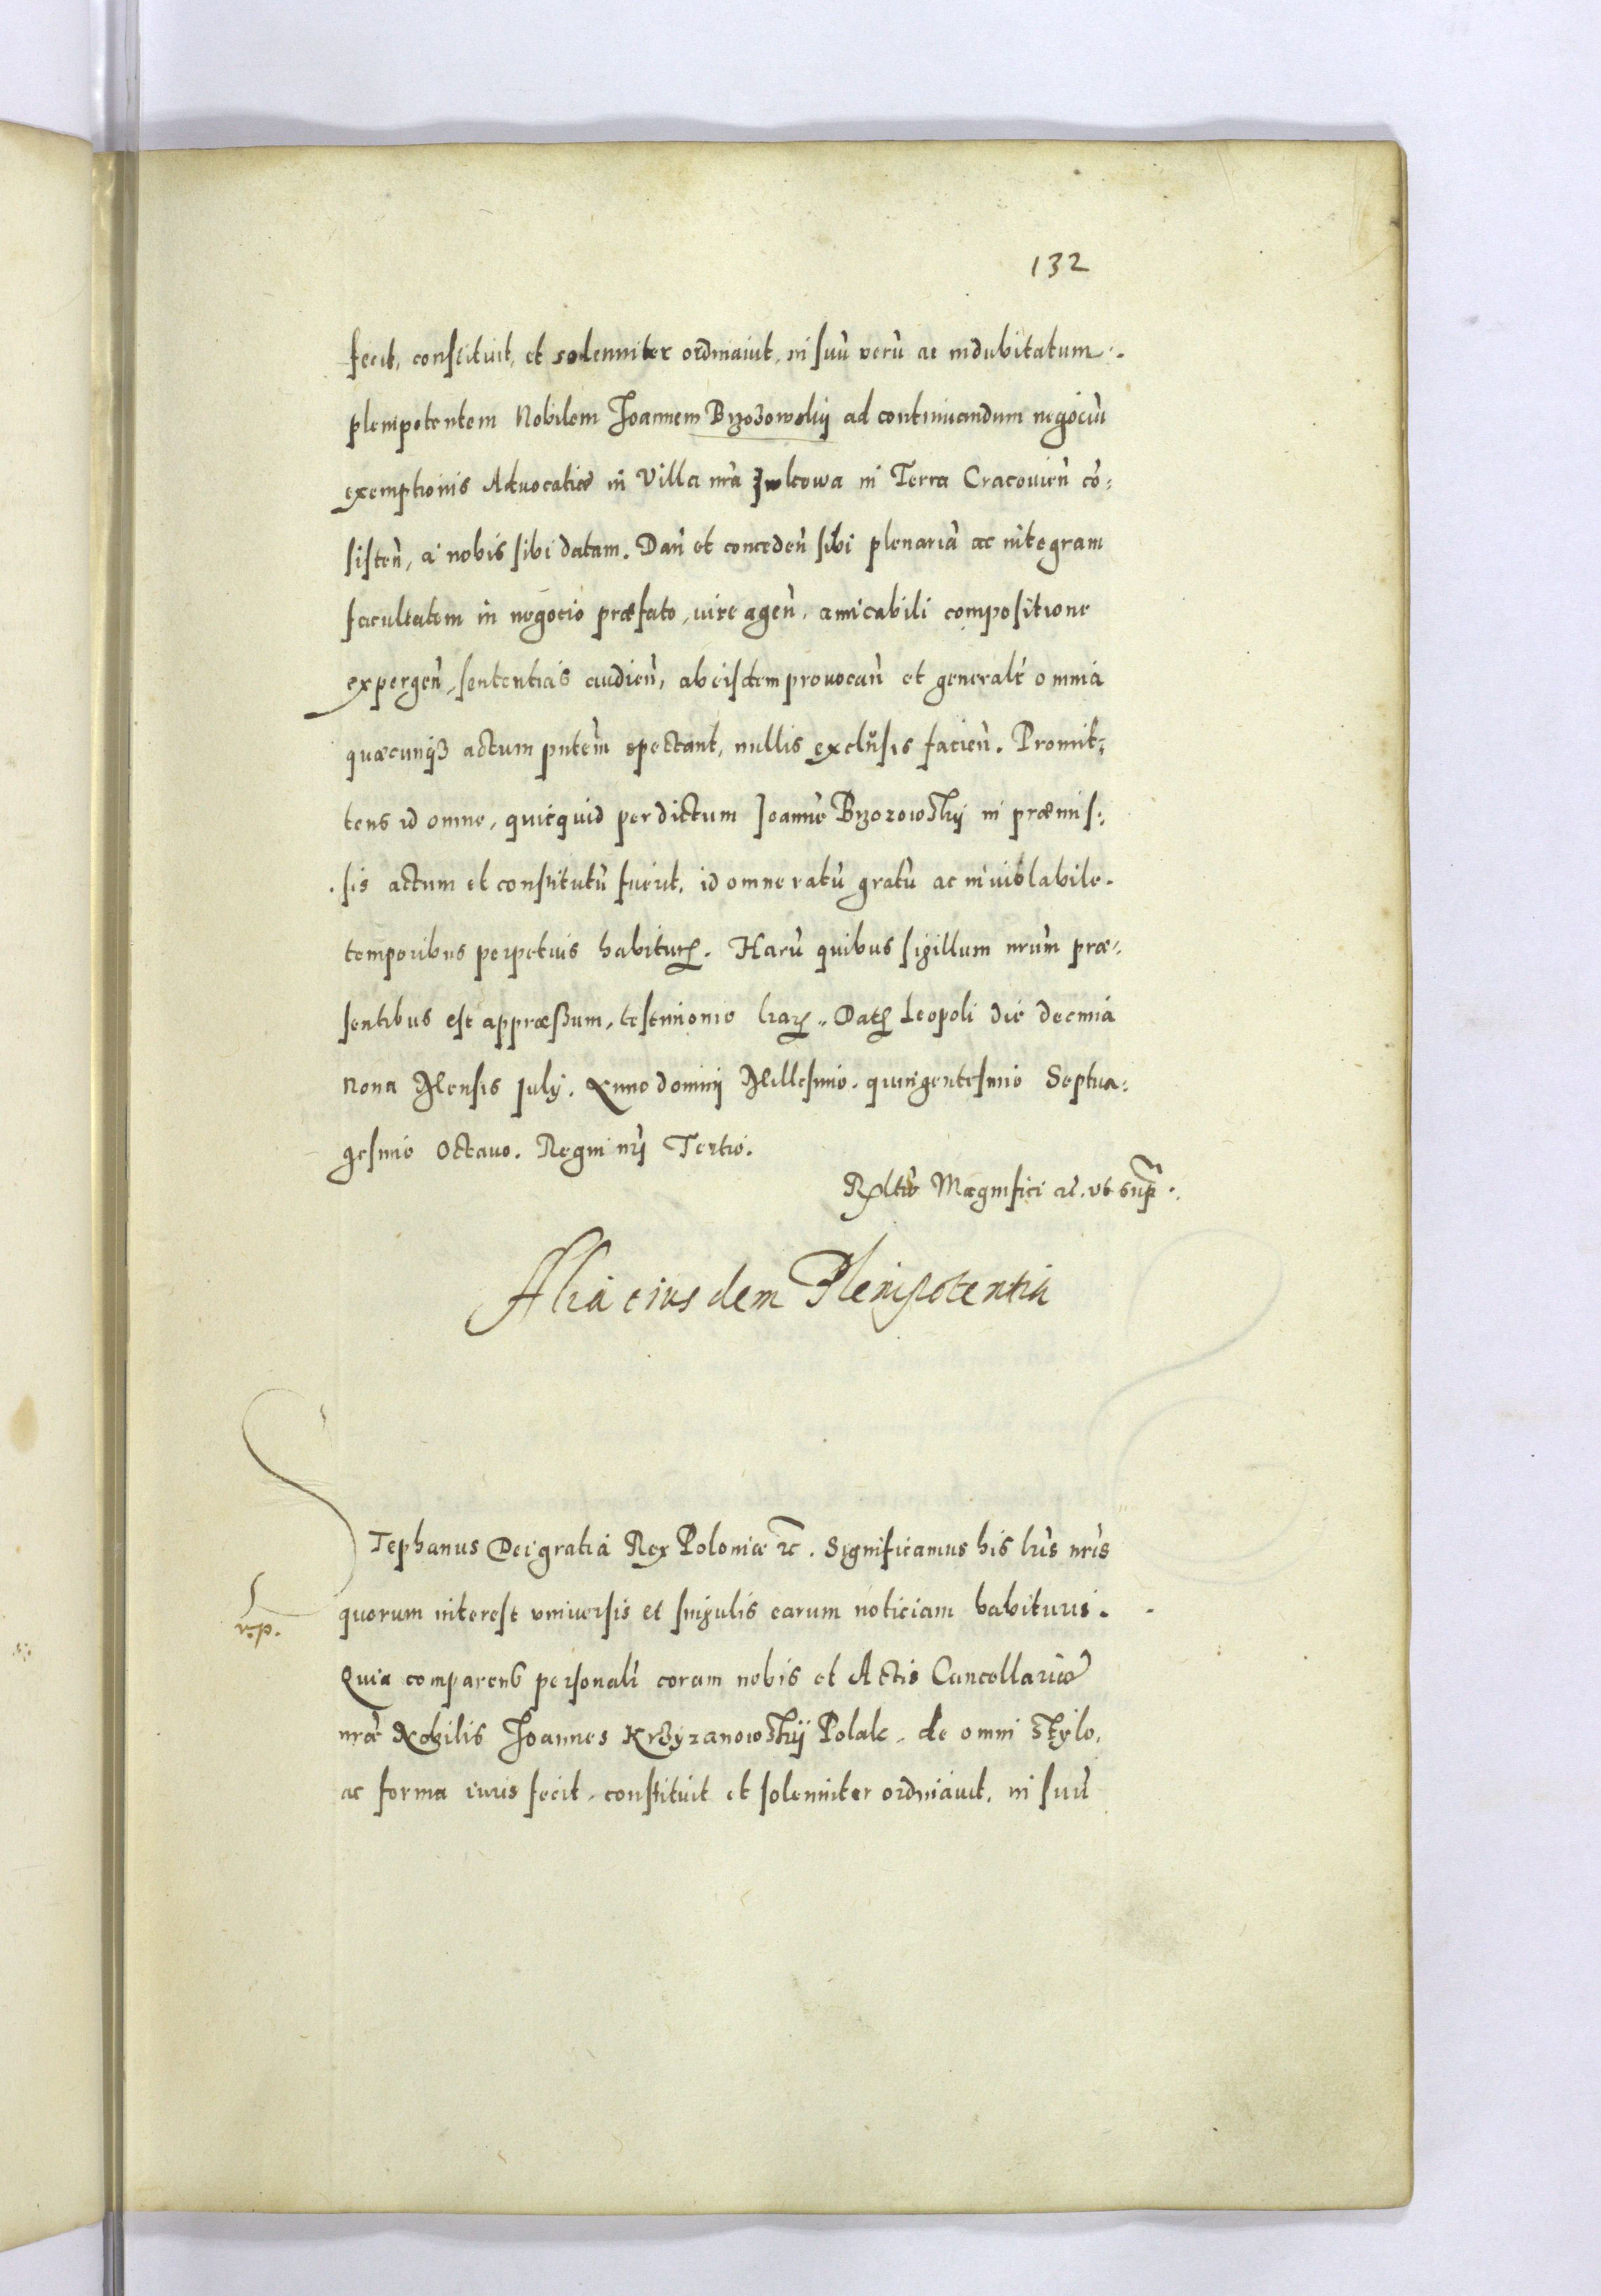 132
fecit, constituit, et solenniter ordinavit, in suũ verũ ac indubitatum
plenipotentem Nobilem Joannem Brzozowskij ad continuandum negociũ
exemptionis Advocatiæ in Villa nr̃a in Terra Cracovien̄ cõ:
sisten̄, a nobis sibi datam. Dan̄ et conceden̄ sibi plenariã ac integram
facultatem in negocio præfato, iure agen̄, amicabili compositione
expergen̄, sententias audien̄, ab eisdem provocan̄ et general̃r omnia
quæcunq3 actum pñtem spectant, nullis exclusis facien̄. Promit:
tens id omne, quicquid per dictum Joannẽ Brzozowskij in præmis:
sis actum et constitutũ fuerit, id omne ratũ gratũ ac inviolabile
temporibus perpetuis habitur. Harũ quibus sigillum nrũm præ:
sentibus est appræssum, testimonio lr̃ar. Dat Leopoli die decima
nona Mensis July. Anno dominj Millesimo quingentesimo Septua:
gesimo Octavo. Regni nr̃j Tertio.
Rel̃tio Magnifici etc. ut supr̃
Alia eiusdem Plenipotentia
Stephanus Dei gratia Rex Poloniæ etc. Significamus his lr̃is nr̃is
quorum interest universis et singulis earum noticiam habituris.
r.p.
Quia comparens personal̃r coram nobis et Actis Cancellariæ
nr̃æ Nobilis Joannes Krzyzanowskij Polak, de omni stylo,
ac forma iuris fecit, constituit et solenniter ordinavit, in suũ